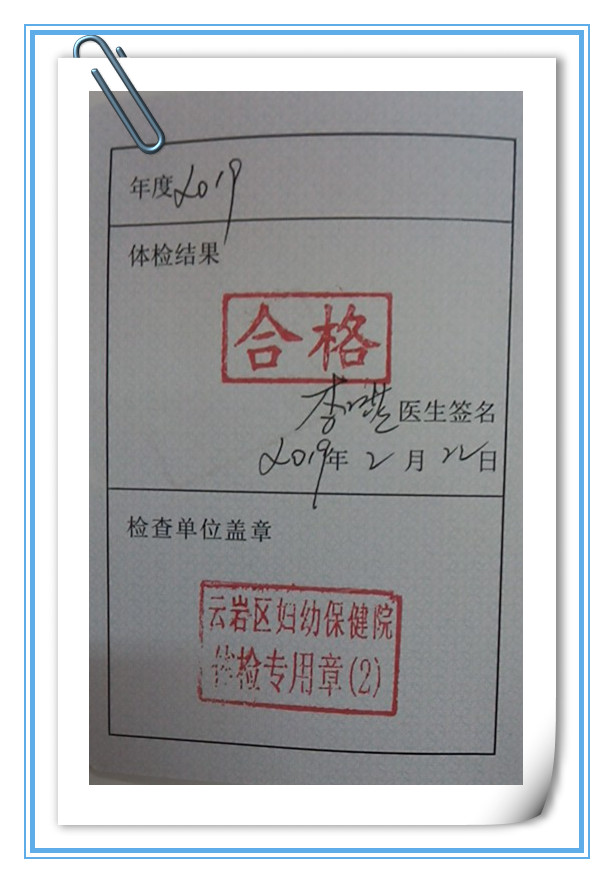 年度2019
体检结果
合格
李 医生签名
2019年2月22日
检查单位盖章
云岩区妇幼保健院
体检专用章(2)